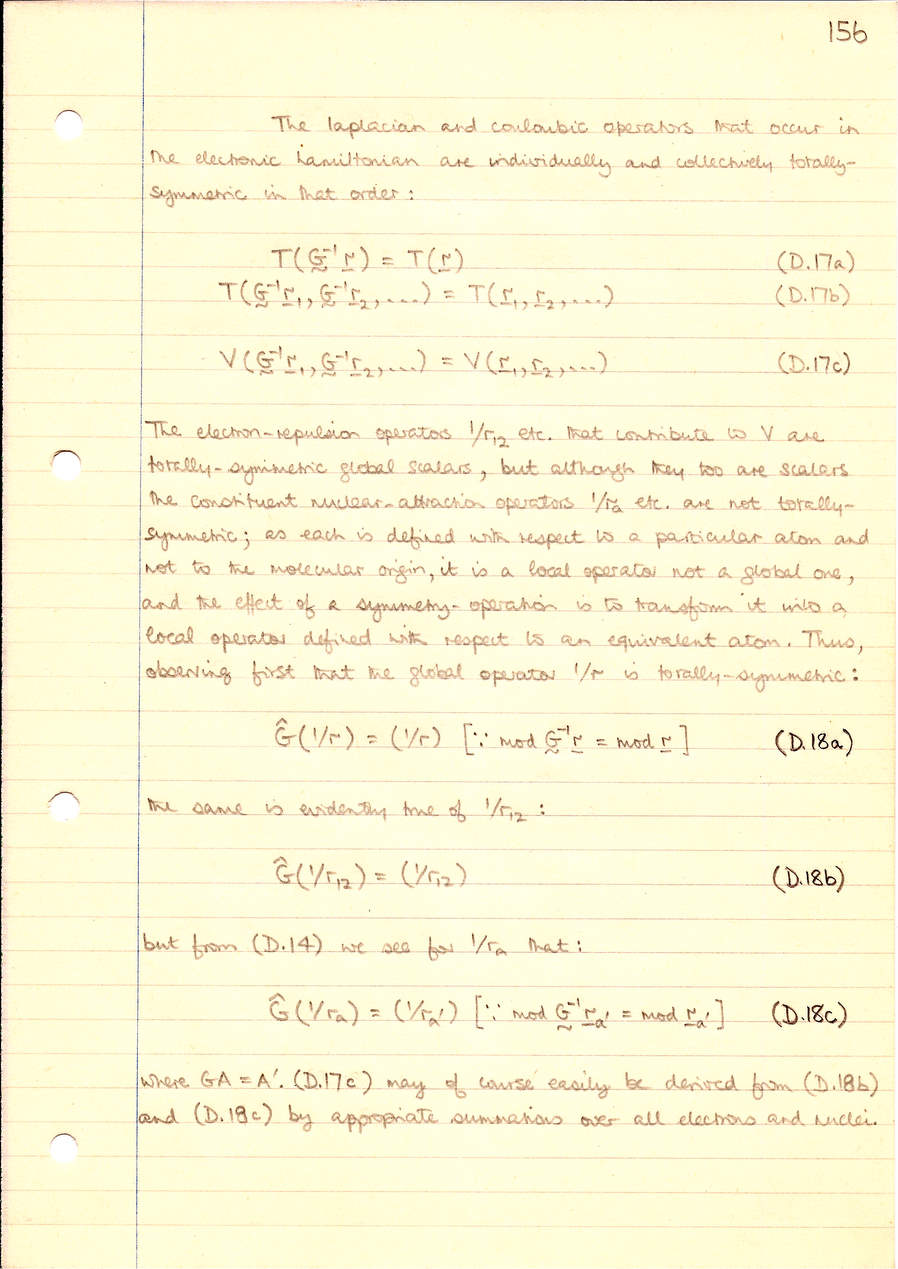 156
The laplacian and couloubic operators that occur in
the electronic hamiltonian are individually and collectively totally-
symmetric in that order :
T(G⁻¹r) = T(r) (D.17a)
T(G⁻¹r₁, G⁻¹r₂, ...) = T(r₁, r₂, ...) (D.17b)
V(G⁻¹r₁, G⁻¹r₂, ...) = V(r₁, r₂, ...) (D.17c)
The electron-repulsion operators 1/r₁₂ etc. that contribute to V are
totally-symmetric global scalars, but although they too are scalars
the constituent nuclear-attraction operators 1/rₐ etc. are not totally-
symmetric; as each is defined with respect to a particular atom and
not to the molecular origin, it is a local operator not a global one,
and the effect of a symmetry-operation is to transform it into a
local operator defined with respect to an equivalent atom. Thus,
observing first that the global operator 1/r is totally-symmetric :
Ĝ(1/r) = (1/r) [∵ mod G⁻¹r = mod r] (D.18a)
the same is evidently true of 1/r₁₂ :
Ĝ(1/r₁₂) = (1/r₁₂) (D.18b)
but from (D.14) we see for 1/rₐ that :
Ĝ(1/rₐ) = (1/rₐ′) [∵ mod G⁻¹rₐ′ = mod rₐ′] (D.18c)
where GA = A′. (D.17c) may of course easily be derived from (D.18b)
and (D.18c) by appropriate summations over all electrons and nuclei.